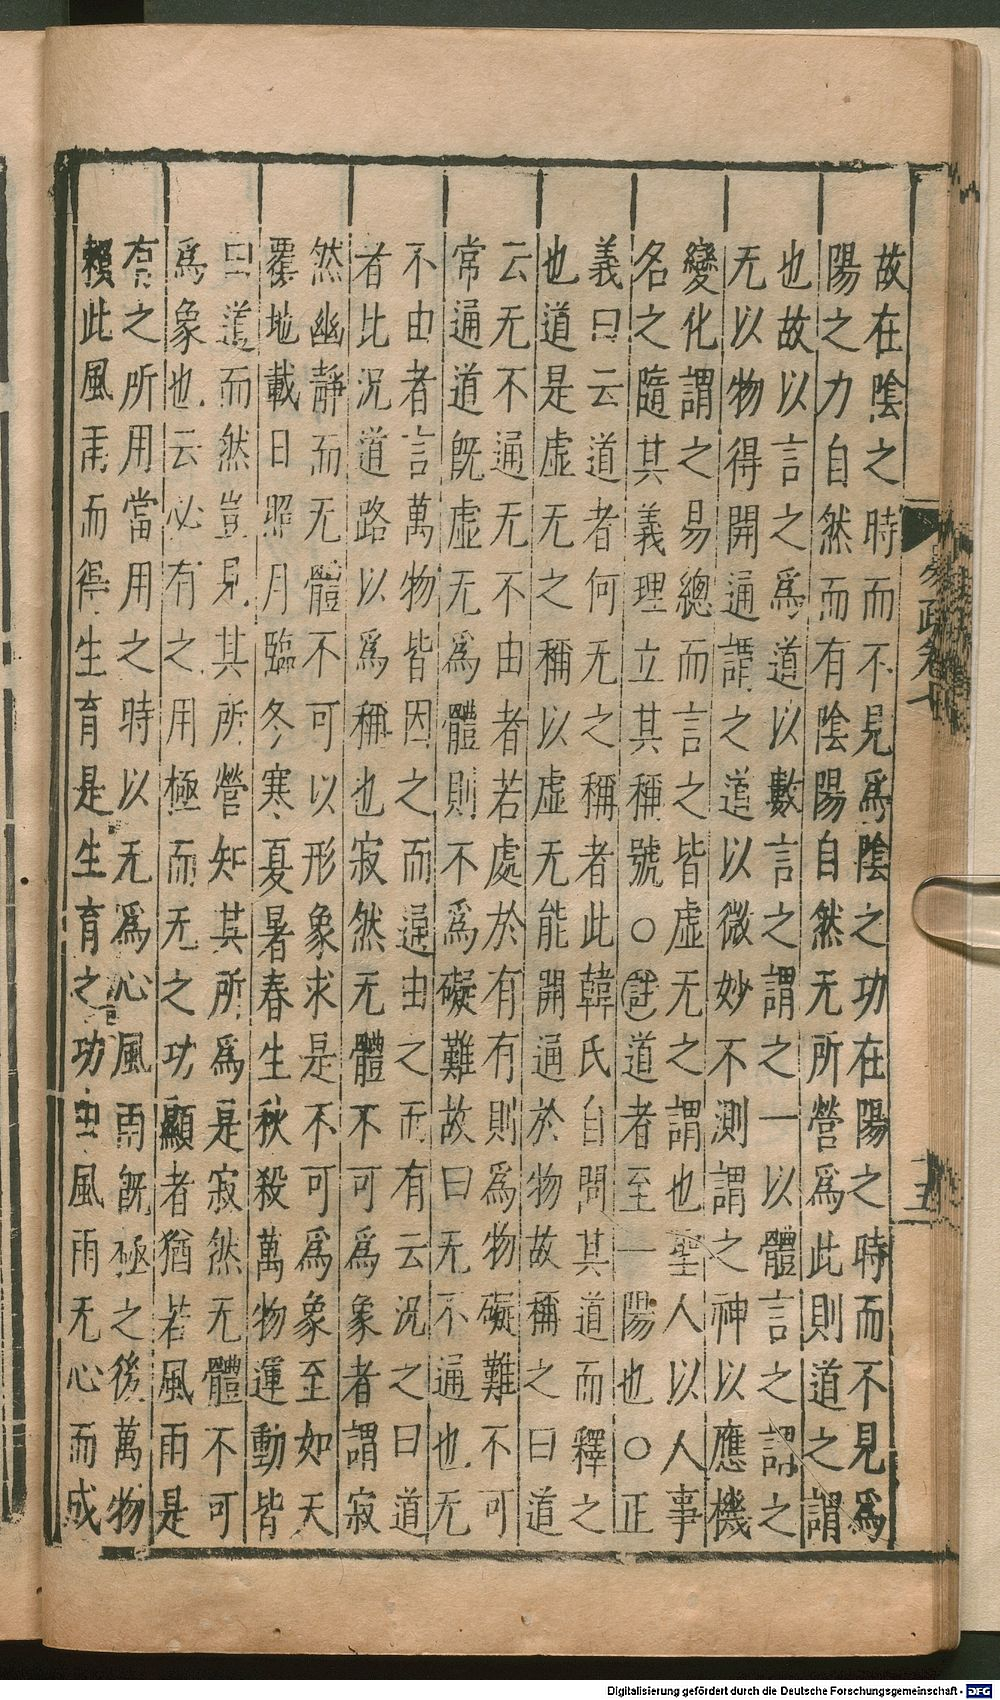 故在陰之時而不見爲陰之功在陽之時而不見爲
陽之力自然而有陰陽自然无所營爲此則道之謂
也故以言之爲道以數言之謂之一以體言之謂之
无以物得開通謂之道以微妙不測謂之神以應機
變化謂之易總而言之皆虛无之謂也聖人以人事
名之隨其義理立其稱號○註道者至一陽也○正
義曰云道者何无之稱者此韓氏自問其道而釋之
也道是虛无之稱以虛无能開通於物故稱之曰道
云无不通无不由者若處於有有則爲物礙難不可
常通道旣虛无爲體則不爲礙難故曰无不通也无
不由者言萬物皆因之而通由之而有云況之曰道
者比況道路以爲稱也寂然无體不可爲象者謂寂
然幽靜而无體不可以形象求是不可爲象至如天
覆地載日照月臨冬寒夏暑春生秋殺萬物運動皆
由道而然豈見其所營知其所爲是寂然无體不可
爲象也云必有之用極而无之功顯者猶若風雨是
有之所用當用之時以无爲心風雨旣極之後萬物
賴此風雨而得生育是生育之功由風雨无心而成
疏卷十
Digitalisierung gefördert durch die Deutsche Forschungsgemeinschaft - DFG